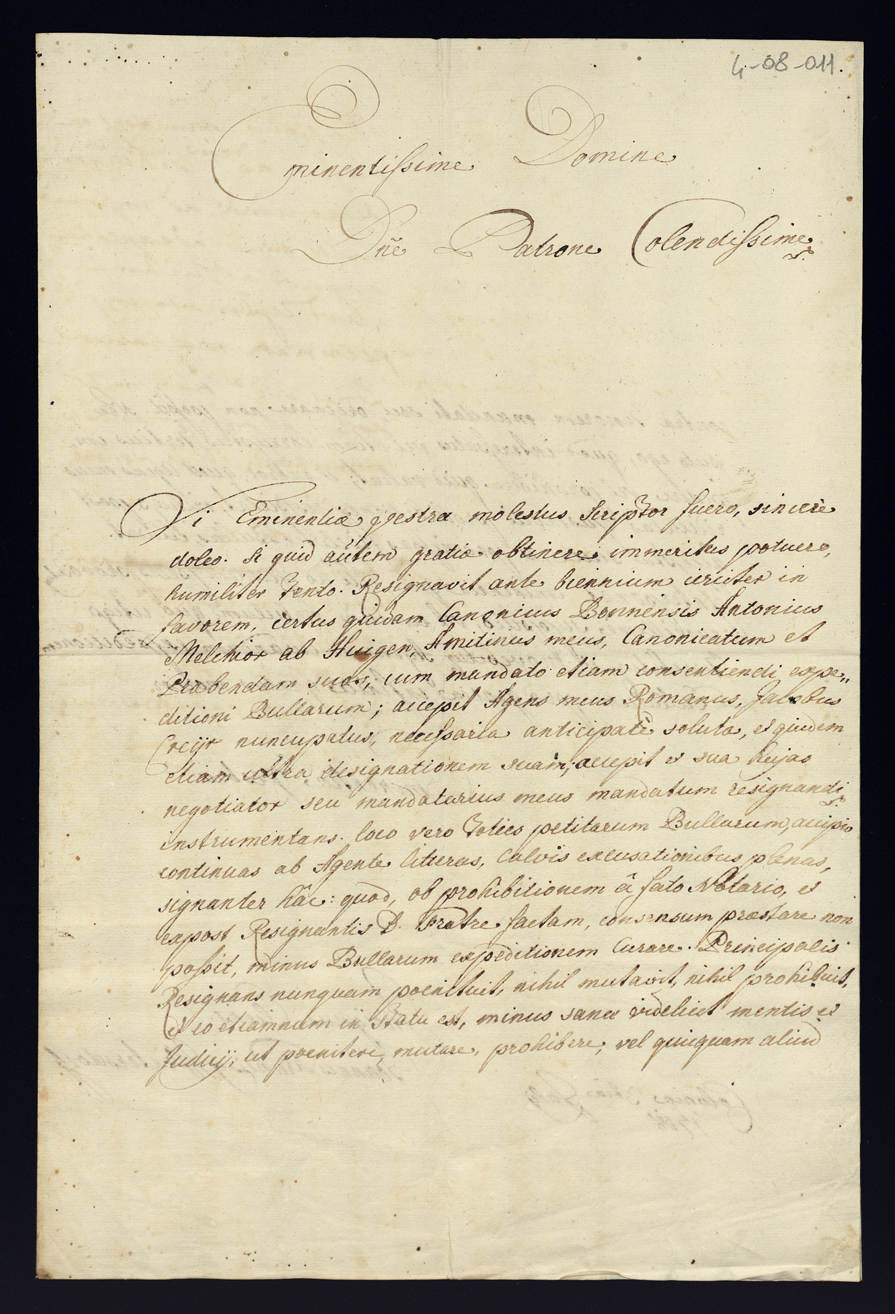 4-08-011.
Eminentissime Domine
Dñe Patrone Colendissime
Si Eminentiæ Vestræ molestus Scriptor fuero, sincerè
doleo. Si quid autem gratiæ obtinere immeritus potuero,
humiliter tento. Resignavit ante biennium circiter in
favorem, certus quidam Canonicus Bonnensis Antonius
Melchior ab Huigen, Amitinus meus, Canonicatum et
Præbendam suas, cum mandato etiam consentiendi expe„
ditioni Bullarum; accepit Agens meus Romanus, Jacobus
nuncupatus, necessaria anticipatè soluta, et quidem
etiam ultra designationem suam, accepit et sua hujas
negotiator seu mandatarius meus mandatum resignandi
instrumentans. loco vero toties petitarum Bullarum, accipio
continuas ab Agente litteras, calvis excusationibus plenas,
signanter hac: quod, ob prohibitionem à fato Notario, et
expost Resignantis D. Fratre factam, consensum præstare non
possit, minus Bullarum expeditionem curare. Principalis
Resignans nunquam poenituit, nihil mutavit, nihil prohibuit,
et eo etiamnum in statu est, minus sanæ videlicet mentis et
Judicij, ut poenitere, mutare, prohibere, vel quicquam aliud